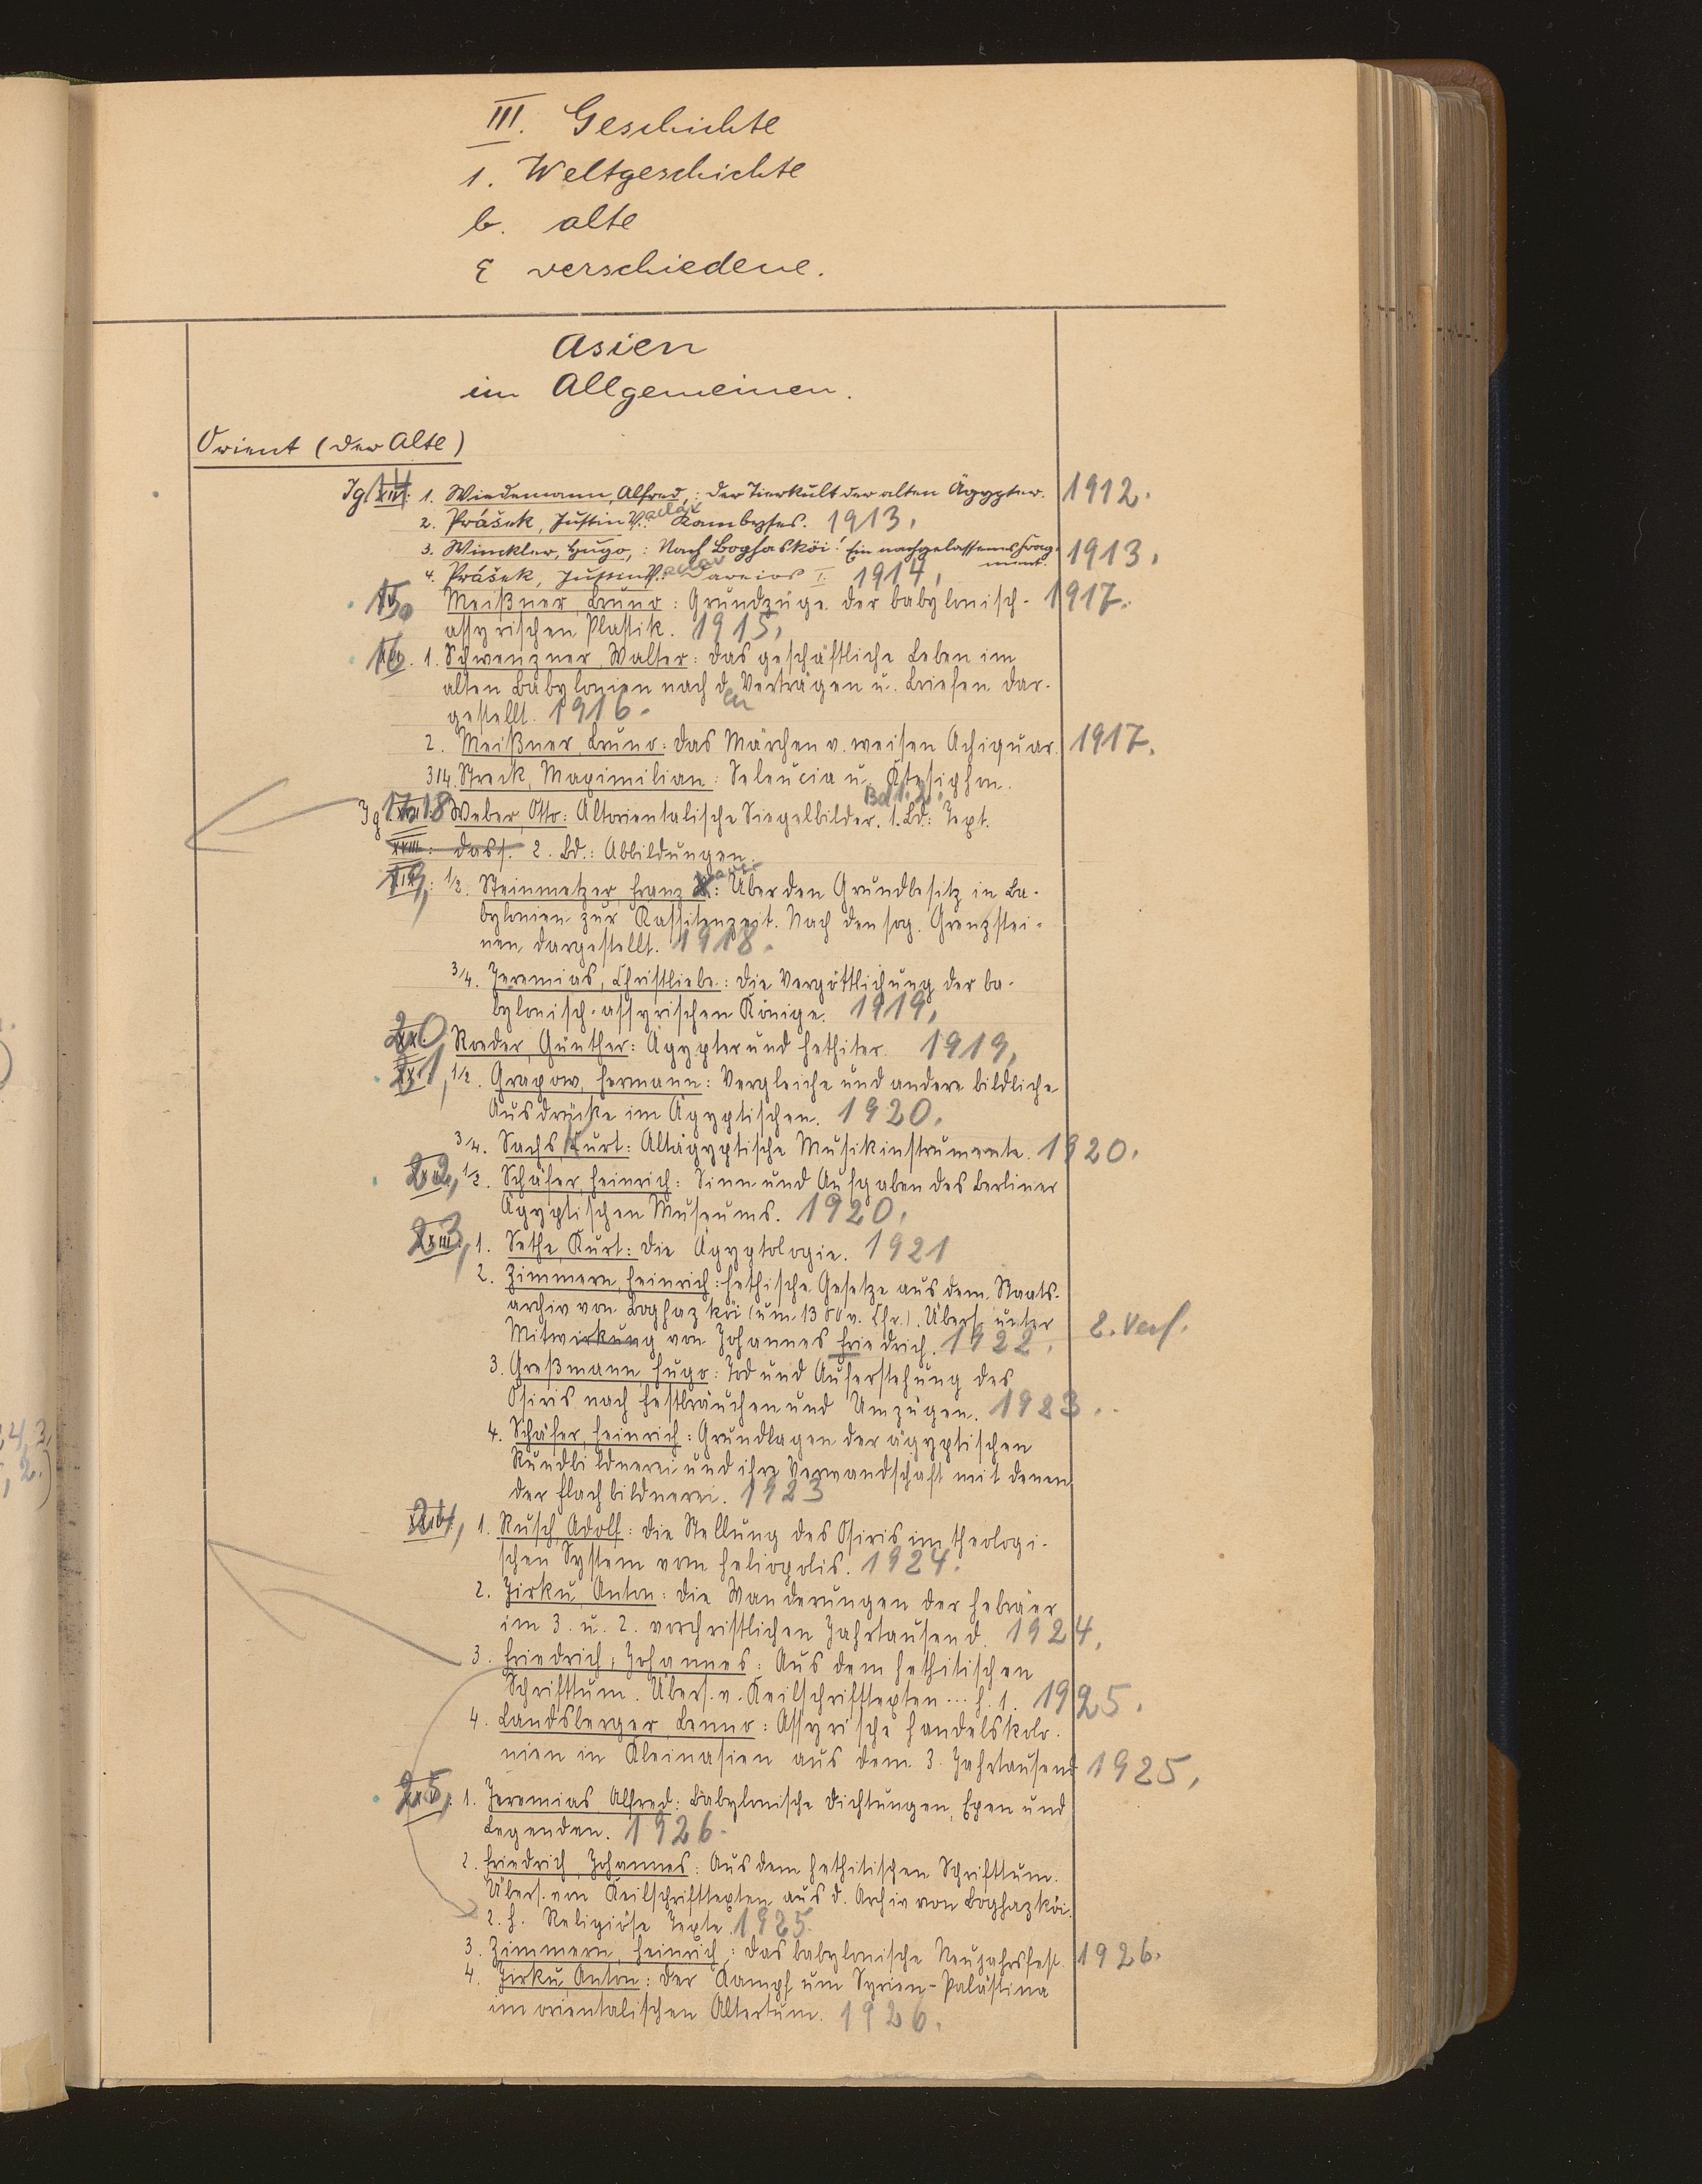 III. Geschichte
1. Weltgeschichte
b. alte
ε verschiedene.
Asien
im Allgemeinen.
Orient (der Alte)
Jg. 14 1. Wiedemann, Alfred,: Der Tierkult der alten Ägypter. 1912.
2. Prášek, Justin Václav: Kambyses. 1913.
3. Winckler, Hugo,: Nach Boghasköi! Ein nachgelassenes Frag- 1913.
ment.
4. Prášek, Justin Václav Dareios I. 1914.
15. Meißner, Bruno: Grundzüge der babylonisch- 1917.
assyrischen Plastik. 1915.
16. 1. Schwenzner, Walter: Das geschäftliche Leben im
alten Babylonien nach den Verträgen u. Briefen dar-
gestellt. 1916.
2. Meißner, Bruno: Das Märchen v. weisen Achiquar. 1917.
3/4. Streck, Maximilian: Seleucia u. Ktesiphon.
Jg 17/18 Weber, Otto: Altorientalische Siegelbilder. Bd 1. 2. 1. Bd: Text.
XVIII: dass. 2. Bd.: Abbildungen.
19, 1/2. Steinmetzer, Franz X: Über den Grundbesitz in Ba-
bylonien zur Kassitenzeit. Nach den sog. Grenzstei-
nen dargestellt. 1918.
3/4. Jeremias, Christliebe: Die Vergöttlichung der ba-
bylonisch-assyrischen Könige. 1919.
20 Roeder, Günther: Ägypter und Hethiter. 1919.
21, 1/2. Grapow, Hermann: Vergleiche und andere bildliche
Ausdrücke im Ägyptischen. 1920.
3/4. Sachs, Curt: Altägyptische Musikinstrumente. 1920.
22, 1/2. Schäfer, Heinrich: Sinn und Aufgaben des Berliner
Ägyptischen Museums. 1920.
23, 1. Sethe, Kurt: Die Ägyptologie. 1921
2. Zimmern, Heinrich: Hethische Gesetze aus dem Staats-
archiv von Boghazköi (um 1300 v. Chr.). Übers. unter
Mitwirkung von Johannes Friedrich. 1922. 2. Verf.
3. Greßmann, Hugo: Tod und Auferstehung des
Osiris nach Festbräuchen und Umzügen. 1923.
4. Schäfer, Heinrich: Grundlagen der ägyptischen
Rundbildnerei und ihre Verwandschaft mit denen
der Flachbildnerei. 1923
24, 1. Rusch, Adolf: Die Stellung des Osiris im theologi-
schen System von Heliopolis. 1924.
2. Jirku, Anton: Die Wanderungen der Hebräer
im 3. u. 2. vorchristlichen Jahrtausend. 1924.
3. Friedrich, Johannes: Aus dem hethitischen
Schrifttum. Übers. v. Keilschrifttexten ... H. 1. 1925.
4. Landsberger, Benno: Assyrische Handelskolo-
nien in Kleinasien aus dem 3. Jahrtausend 1925.
25, 1. Jeremias, Alfred: Babylonische Dichtungen, Epen und
Legenden. 1926.
2. Friedrich, Johannes: Aus dem hethitischen Schrifttum.
Übers. von Keilschrifttexten aus d. Archiv von Boghazköi.
2. H. Religiöse Texte. 1925.
3. Zimmern, Heinrich,: Das babylonische Neujahrsfest. 1926.
4. Jirku, Anton: Der Kampf um Syrien-Palästina
im orientalischen Altertum. 1926.